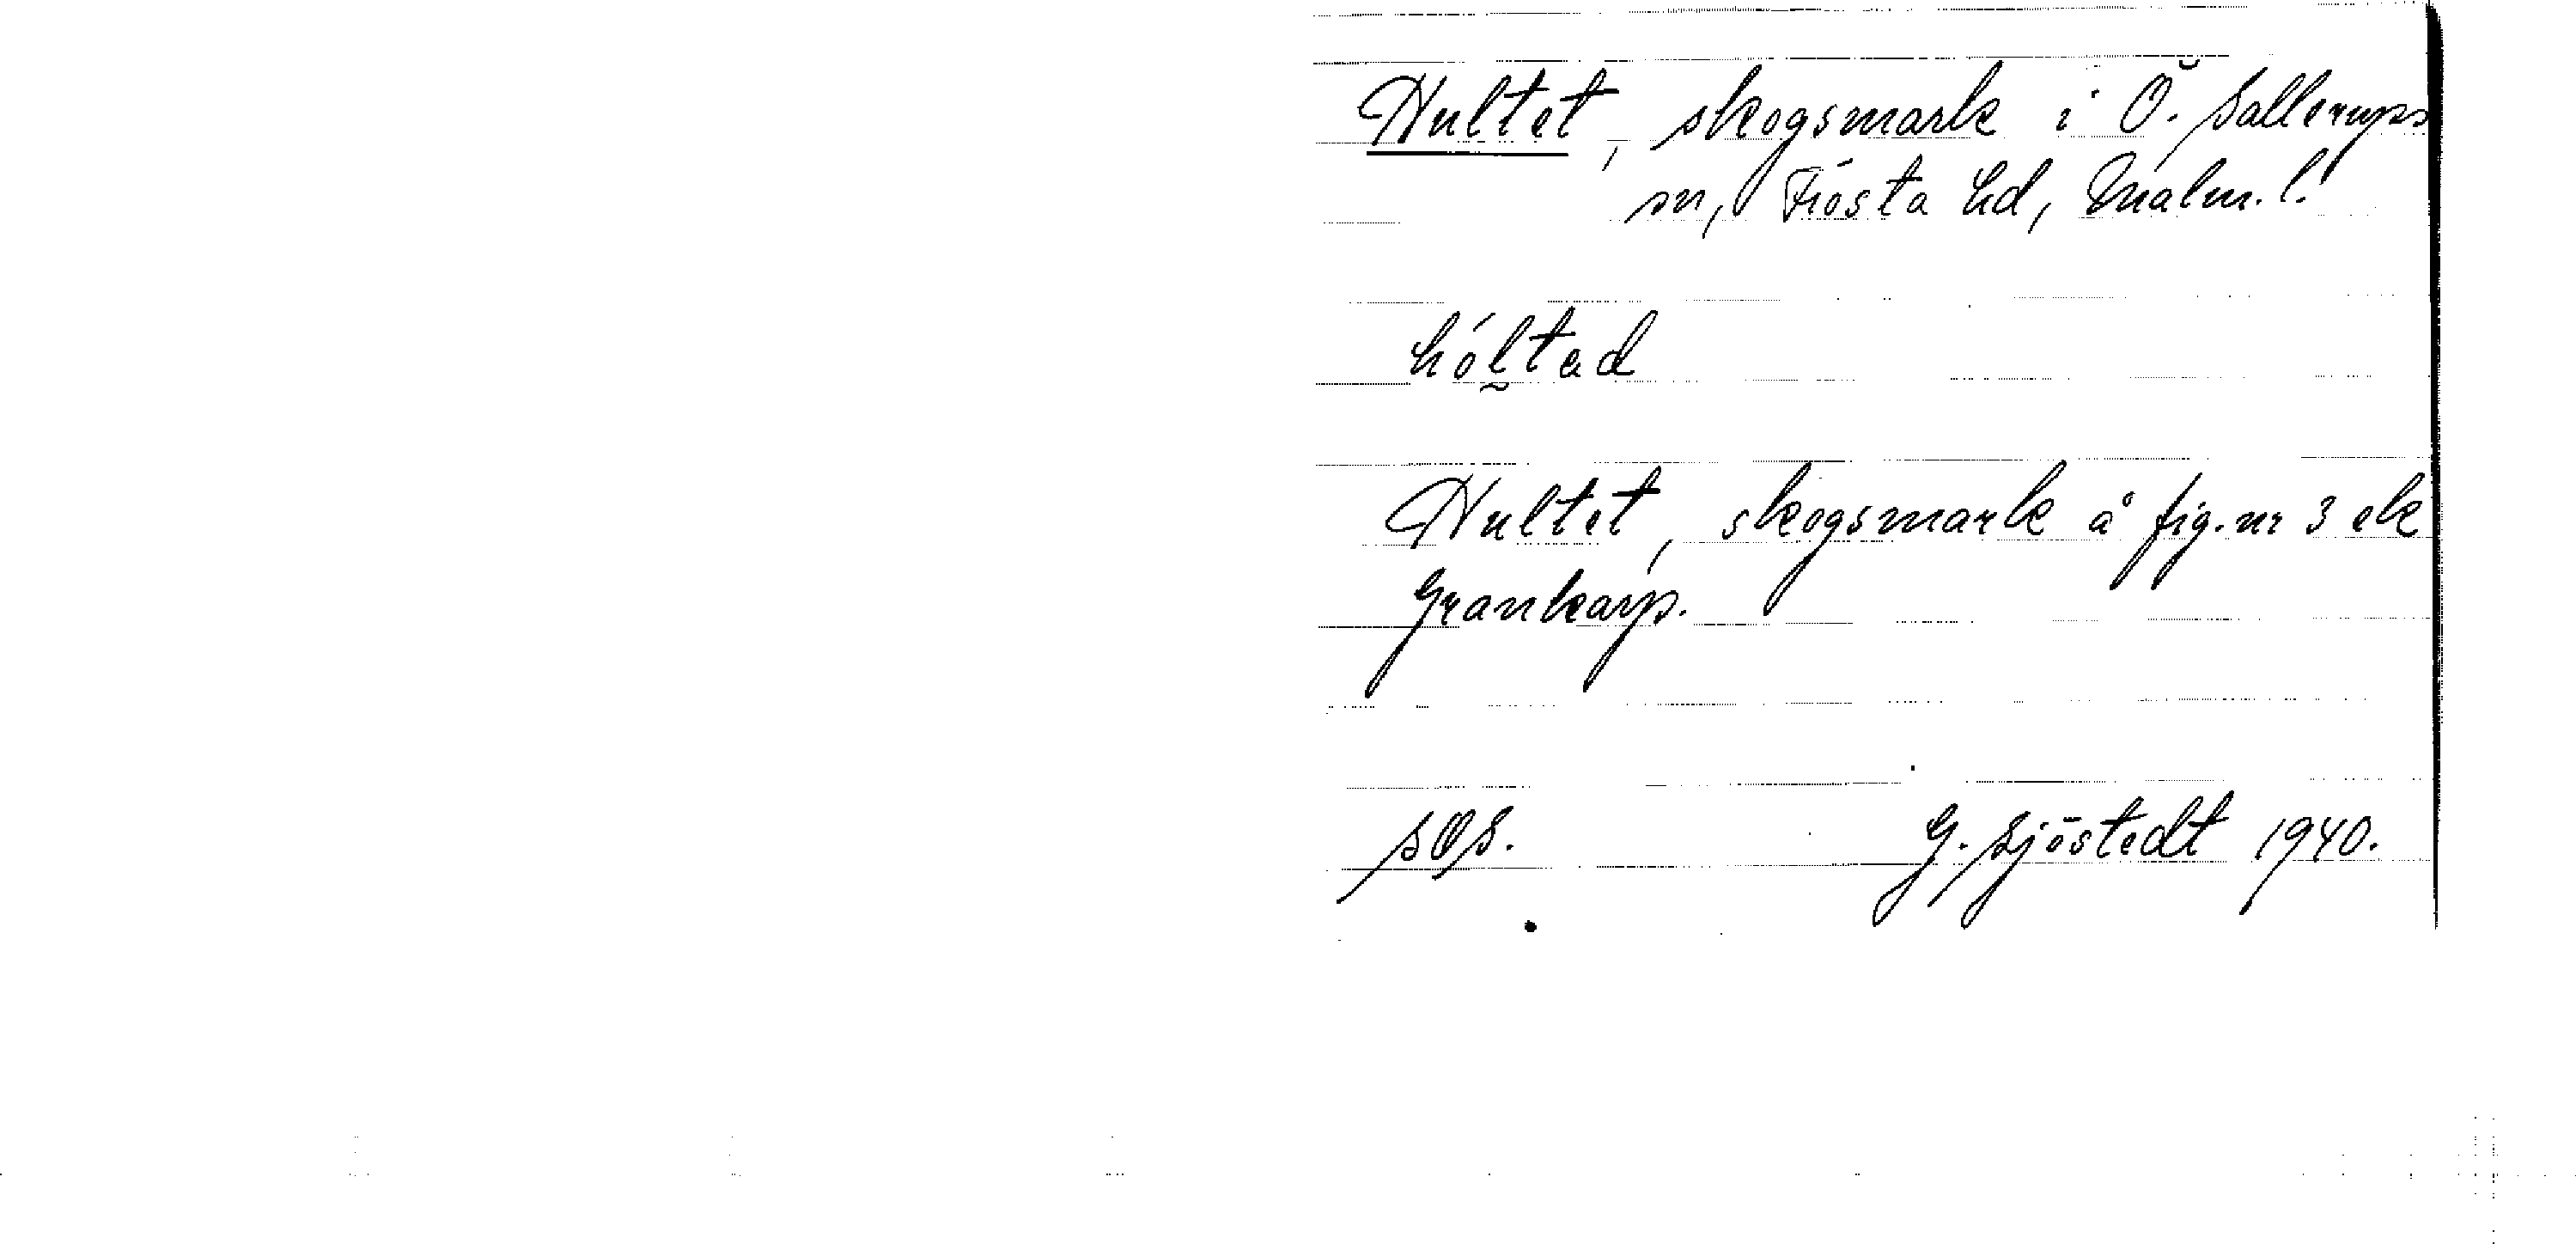 Hultet, skogsmark i Ö. Sallerups
sn, Frosta hd, Malm. l.
hóltad
Hultet, skogsmark å fig. nr 3 ek
Grankarp.
SOS. G. Sjöstedt 1940.